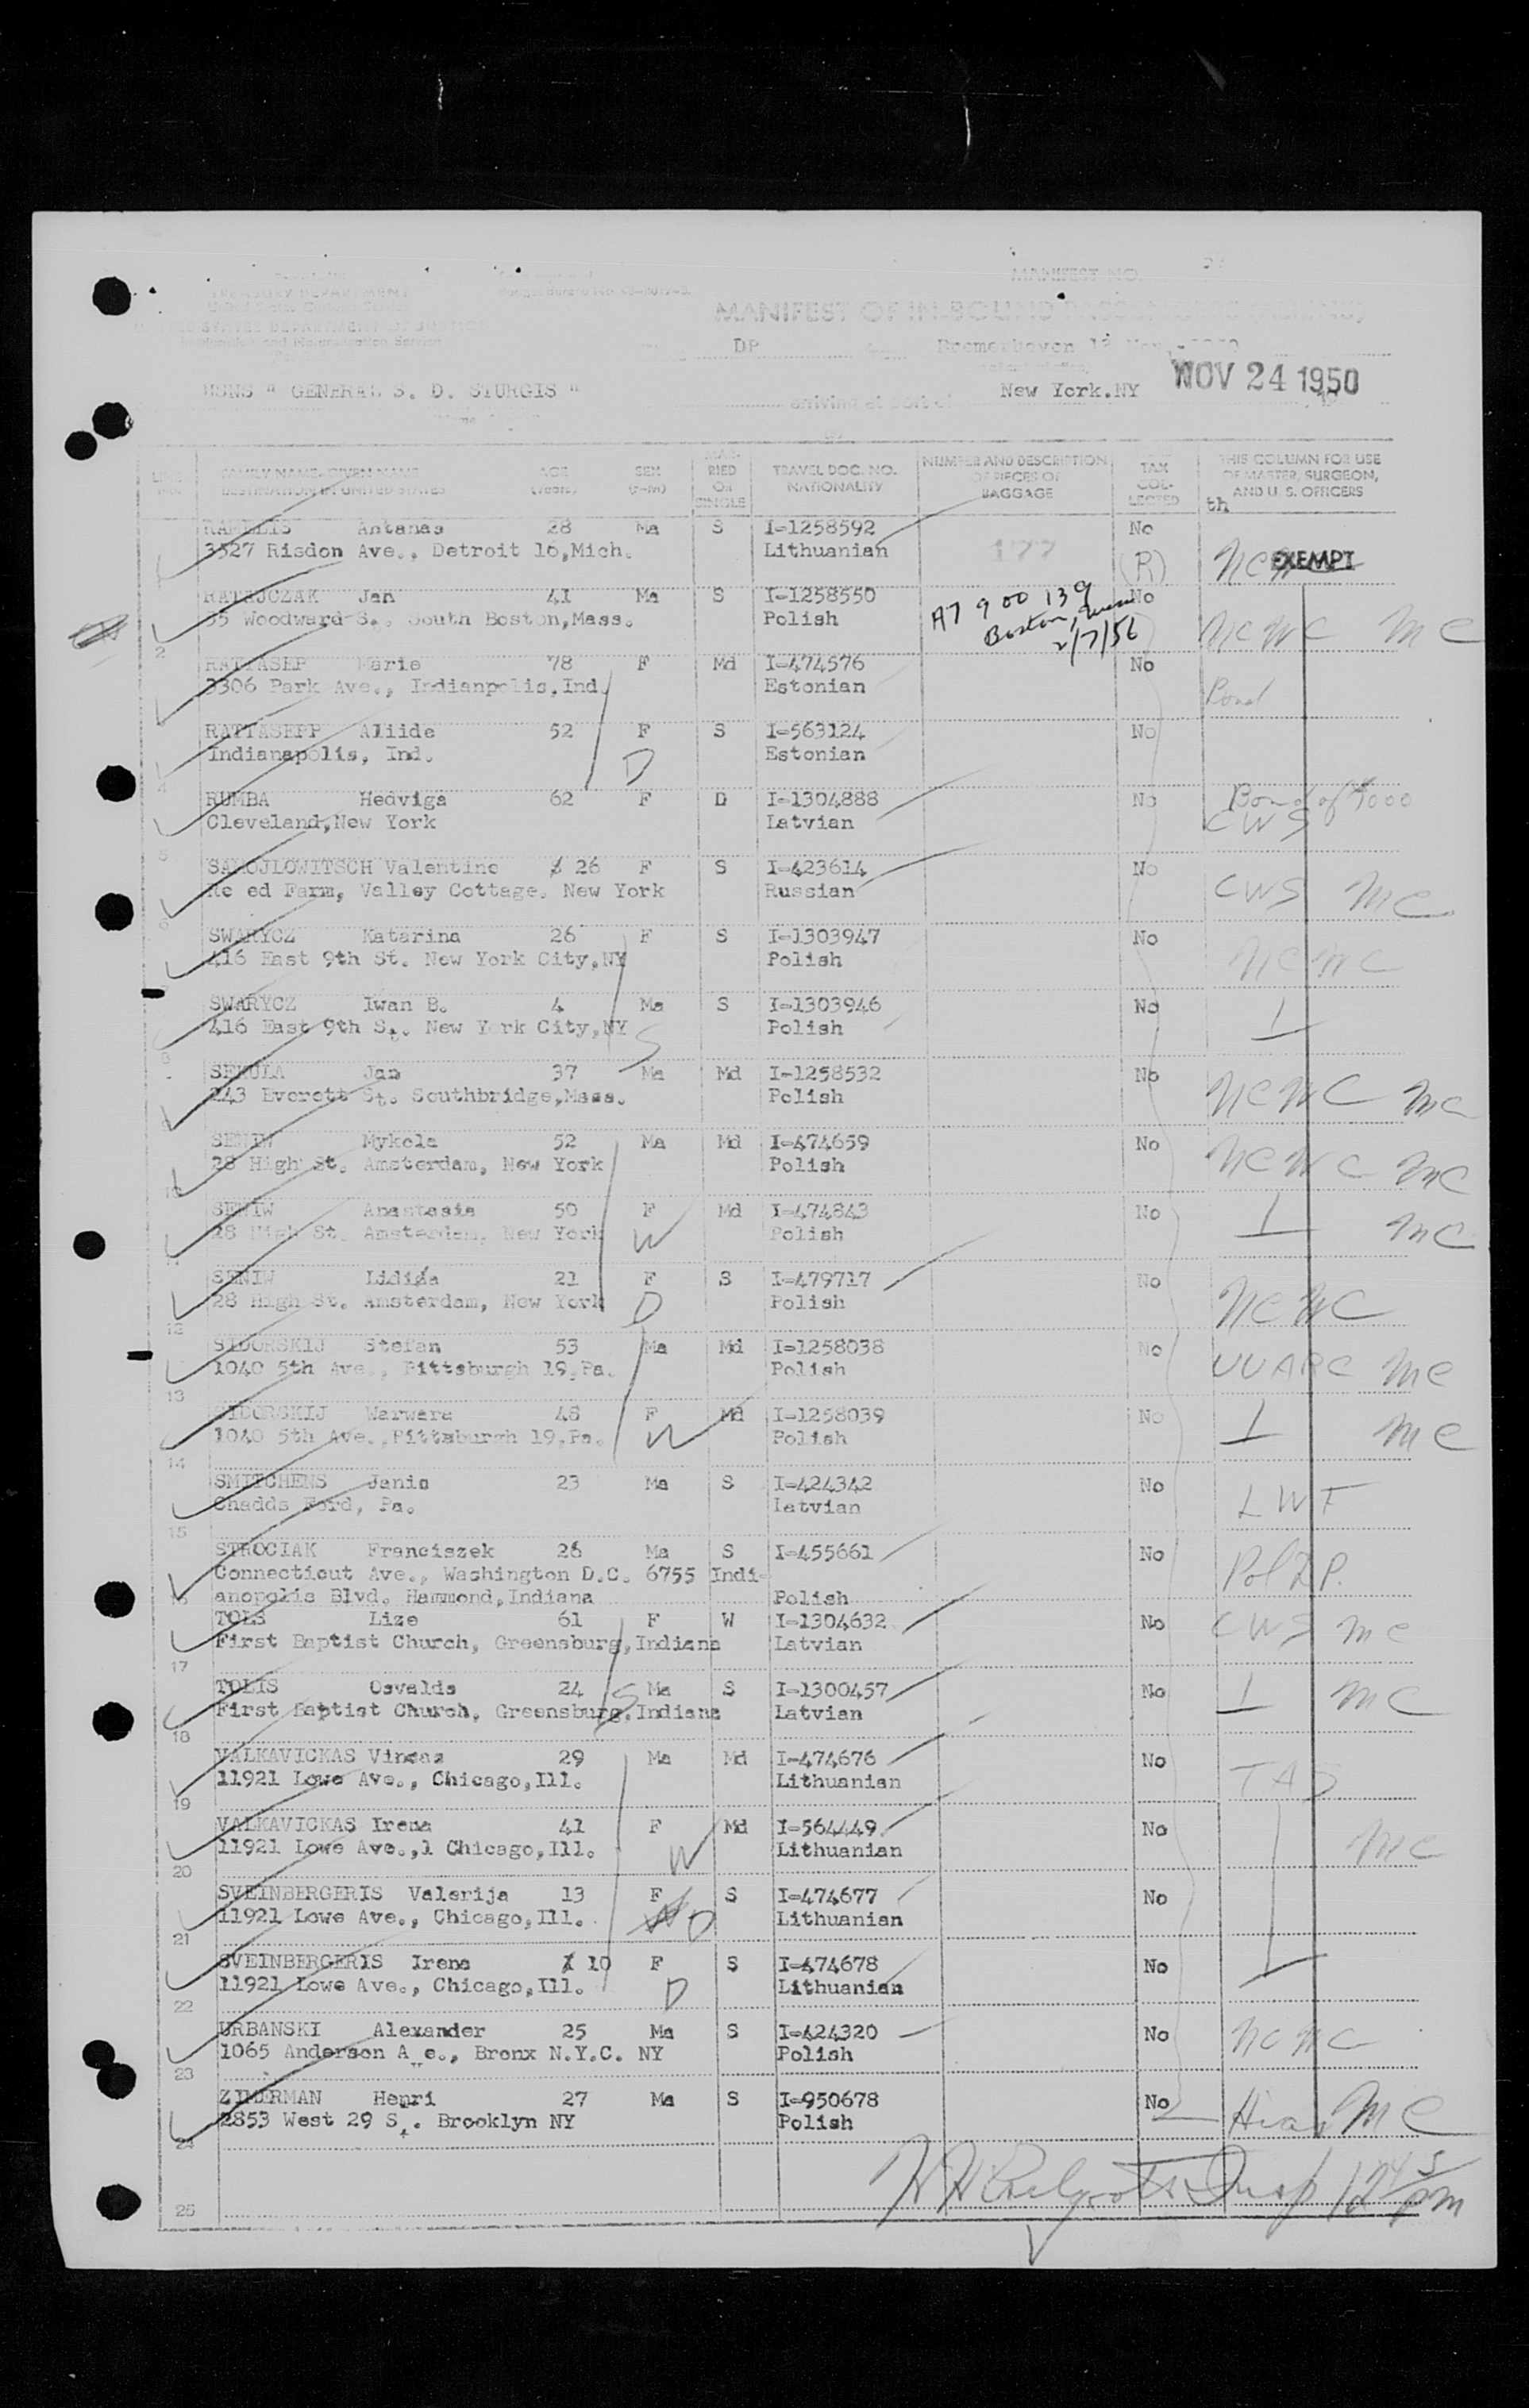 MANIFEST NO.
TREASURY DEPARTMENT
MANIFEST OF IN-BOUND PASSENGERS
STATES DEPARTMENT OF JUSTICE
DP Bremerhaven
USNS " GENERAL S. D. STURGIS " arriving at port of New York.NY NOV 24 1950
FAMILY NAME-GIVEN NAME DESTINATION IN UNITED STATES AGE (Years) SEX (F-M) MARRIED OR SINGLE TRAVEL DOC. NO. NATIONALITY NUMBER AND DESCRIPTION OF PIECES OF BAGGAGE TAX COLLECTED THIS COLUMN FOR USE OF MASTER, SURGEON, AND U. S. OFFICERS
th
Antanas 28 Ma S I-1258592 No
3527 Risdon Ave., Detroit 16,Mich. Lithuanian 177 (R) EXEMPT
RATAJCZAK Jan 41 Ma S I-1258550 A7 900 139 No
35 Woodward S.. South Boston,Mass. Polish Boston, 2/7/56 NCWC MC
2
RATTASEP Marie 78 F Md I-474576 No
3306 Park Ave., Indianpolis,Ind. Estonian Bond
RATTASEPP Aliide 52 F S I-563124 No
Indianapolis, Ind. D Estonian
4
RUMBA Hedviga 62 F D I-1304888 No Bond of
Cleveland,New York Latvian CWS
5
SAMOJLOWITSCH Valentine 26 F S I-423614 No
Re ed Farm, Valley Cottage. New York Russian CWS MC
6
SWARYCZ Katarina 26 F S I-1303947 No
416 East 9th St. New York City,NY Polish NCWC
SWARYCZ Iwan B. 4 Ma S I-1303946 No
416 East 9th St. New York City,NY S Polish
8
SEKULA Jan 37 Ma Md I-1258532 No
243 Everett St. Southbridge,Mass. Polish NCWC MC
SENIW Mykola 52 Ma Md I-474659 No
28 High St. Amsterdam, New York Polish NCWC MC
10
SENIW Anastasia 50 F Md I-474843 No
28 High St. Amsterdam, New York W Polish MC
11
SENIW Lidija 21 F S I-479717 No
28 High St. Amsterdam, New York D Polish NCWC
12
SIDORSKIJ Stefan 53 Ma Md I-1258038 No
1040 5th Ave., Pittsburgh 19,Pa. Polish UUARC MC
13
SIDORSKIJ Warwara 48 F Md I-1258039 No
1040 5th Ave.,Pittsburgh 19,Pa. W Polish MC
14
SMITCHENS Janis 23 Ma S I-424342 No
Chadds Ford, Pa. Latvian LWF
15
STROCIAK Franciszek 26 Ma S I-455661 No
Connecticut Ave., Washington D.C. 6755 Indi- Pol
anopolis Blvd. Hammond,Indiana Polish
16
TOLS Lize 61 F W I-1304632 No CWS MC
First Baptist Church, Greensburg,Indiana Latvian
17
TOLIS Osvalds 24 S Ma S I-1300457 No MC
First Baptist Church, Greensburg,Indiana Latvian
18
VALKAVICKAS Vincas 29 Ma Md I-474676 No
11921 Lowe Ave., Chicago,Ill. Lithuanian
19
VALKAVICKAS Irena 41 F Md I-564449 No
11921 Lowe Ave.,1 Chicago,Ill. W Lithuanian MC
20
SVEINBERGERIS Valerija 13 F S I-474677 No
11921 Lowe Ave., Chicago,Ill. D Lithuanian
21
SVEINBERGERIS Irena 10 F S I-474678 No
11921 Lowe Ave., Chicago,Ill. D Lithuanian
22
URBANSKI Alexander 25 Ma S I-424320 No NCWC
1065 Anderson A e., Bronx N.Y.C. NY Polish
23
ZIMERMAN Henri 27 Ma S I-950678 No
2853 West 29 St. Brooklyn NY Polish Hias MC
24
Insp 12 45 pm
25